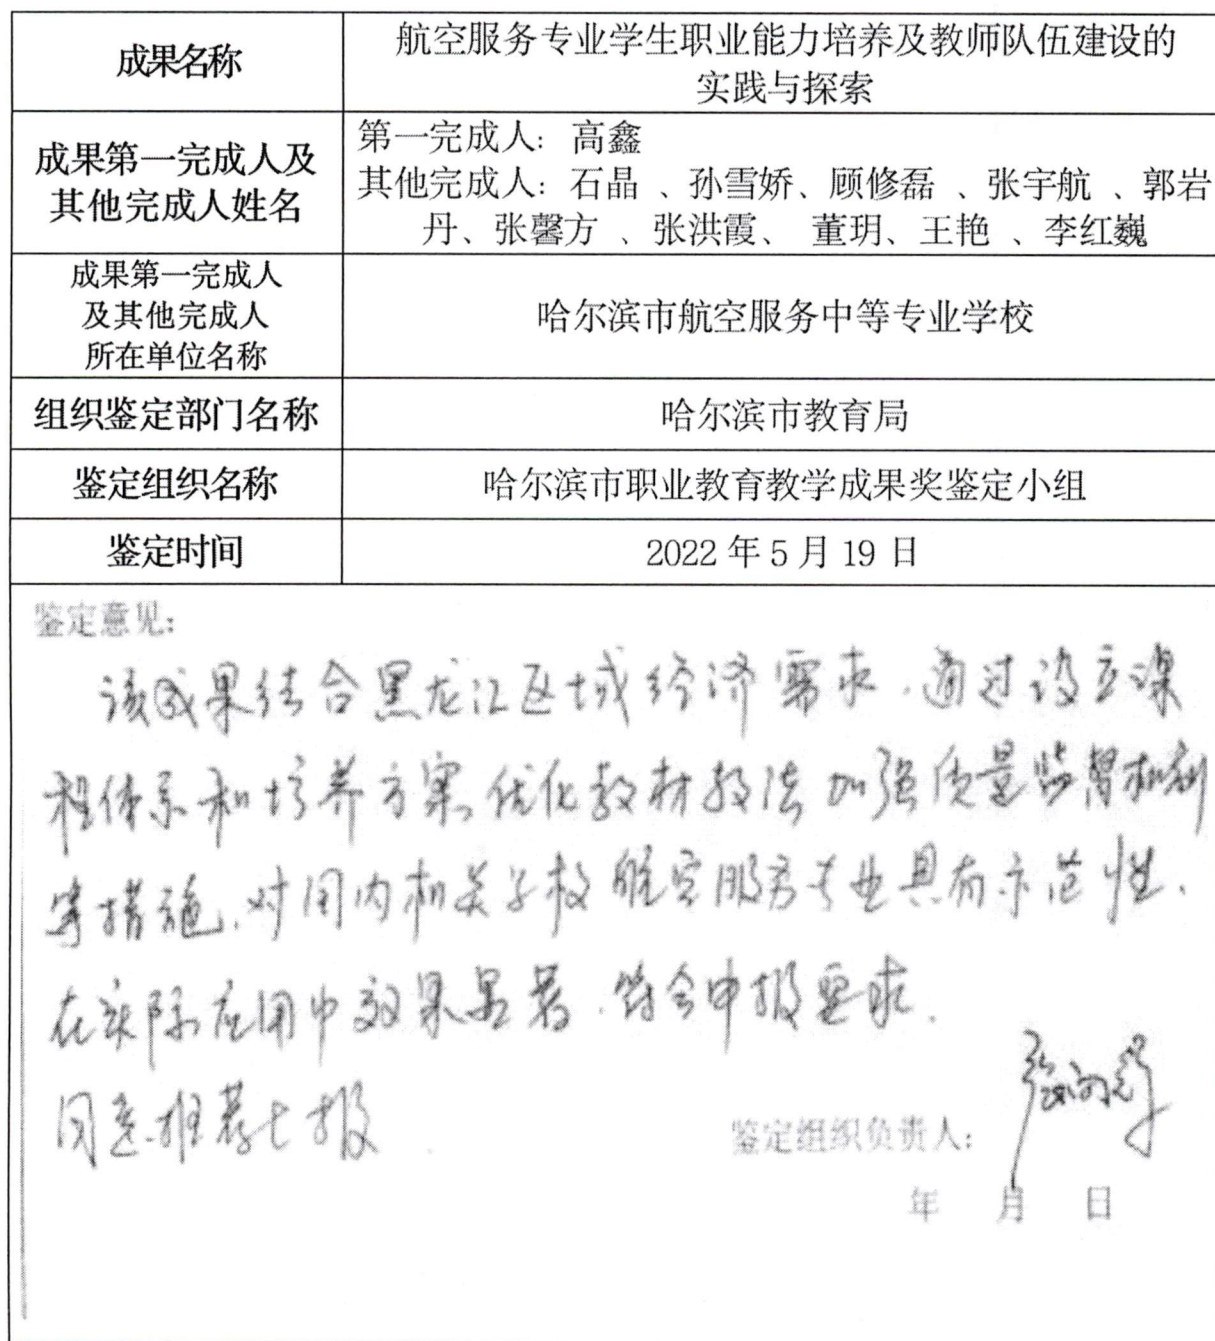 成果名称
航空服务专业学生职业能力培养及教师队伍建设的
实践与探索
成果第一完成人及
其他完成人姓名
第一完成人：高鑫
其他完成人：石晶 、孙雪娇、顾修磊 、张宇航 、郭岩
丹、张馨方 、张洪霞、 董玥、王艳 、李红巍
成果第一完成人
及其他完成人
所在单位名称
哈尔滨市航空服务中等专业学校
组织鉴定部门名称
哈尔滨市教育局
鉴定组织名称
哈尔滨市职业教育教学成果奖鉴定小组
鉴定时间
2022 年 5 月 19 日
鉴定意见：
该成果结合黑龙江区域经济需求，通过设立课
程体系和培养方案，优化教材教法 加强质量监督机制
等措施，对国内相关学校航空服务专业具有示范性，
在实际应用中效果显著，符合申报要求。
同意推荐上报
鉴定组织负责人：
年 月 日